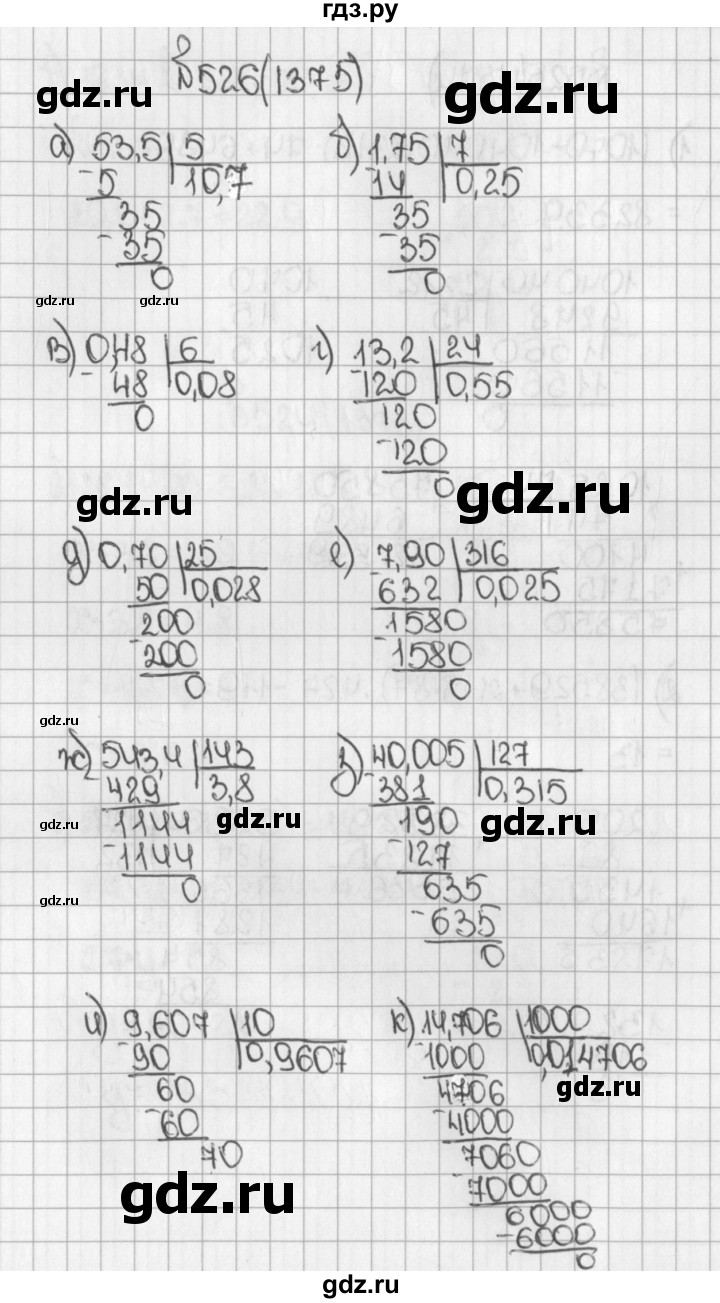 гдз.ру
№526(1375)
gdz.ru
gdz.ru
а) 53,5 5
-5 10,7
35
-35
0
б) 1,75 7
-14 0,25
35
-35
0
gdz.ru
gdz.ru
в) 0,48 6
-48 0,08
0
г) 13,2 24
-120 0,55
120
-120
0
gdz.ru
gdz.ru
д) 0,70 25
-50 0,028
200
-200
0
е) 7,90 316
-632 0,025
1580
-1580
0
gdz.ru
ж) 543,4 143
-429 3,8
1144
-1144
0
з) 40,005 127
-381 0,315
190
-127
635
-635
0
gdz.ru
gdz.ru
gdz.ru
gdz.ru
и) 9,607 10
-90 0,9607
60
-60
70
к) 14,706 1000
-1000 0,014706
4706
-4000
7060
-7000
6000
-6000
0
gdz.ru
gdz.ru
gdz.ru